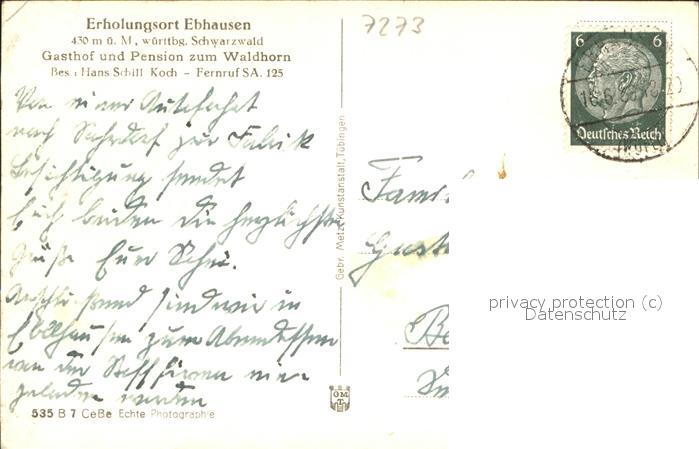 Erholungsort Ebhausen
430 m ü. M., württbg. Schwarzwald
Gasthof und Pension zum Waldhorn
Bes.: Hans Schill Koch - Fernruf SA. 125
7273
6 6
Deutsches Reich
Von einer Autofahrt
nach zur Fabrik
Besichtigung sendet
Euch beiden die herzlichsten
Grüße Euer
Anschließend sind wir in
Ebhausen zum Abendessen
von der ein-
geladen worden
535 B 7 CeBe Echte Photographie
Gebr. Metz, Kunstanstalt, Tübingen
GM
T
Fami
Gust
Be
privacy protection (c)
Datenschutz